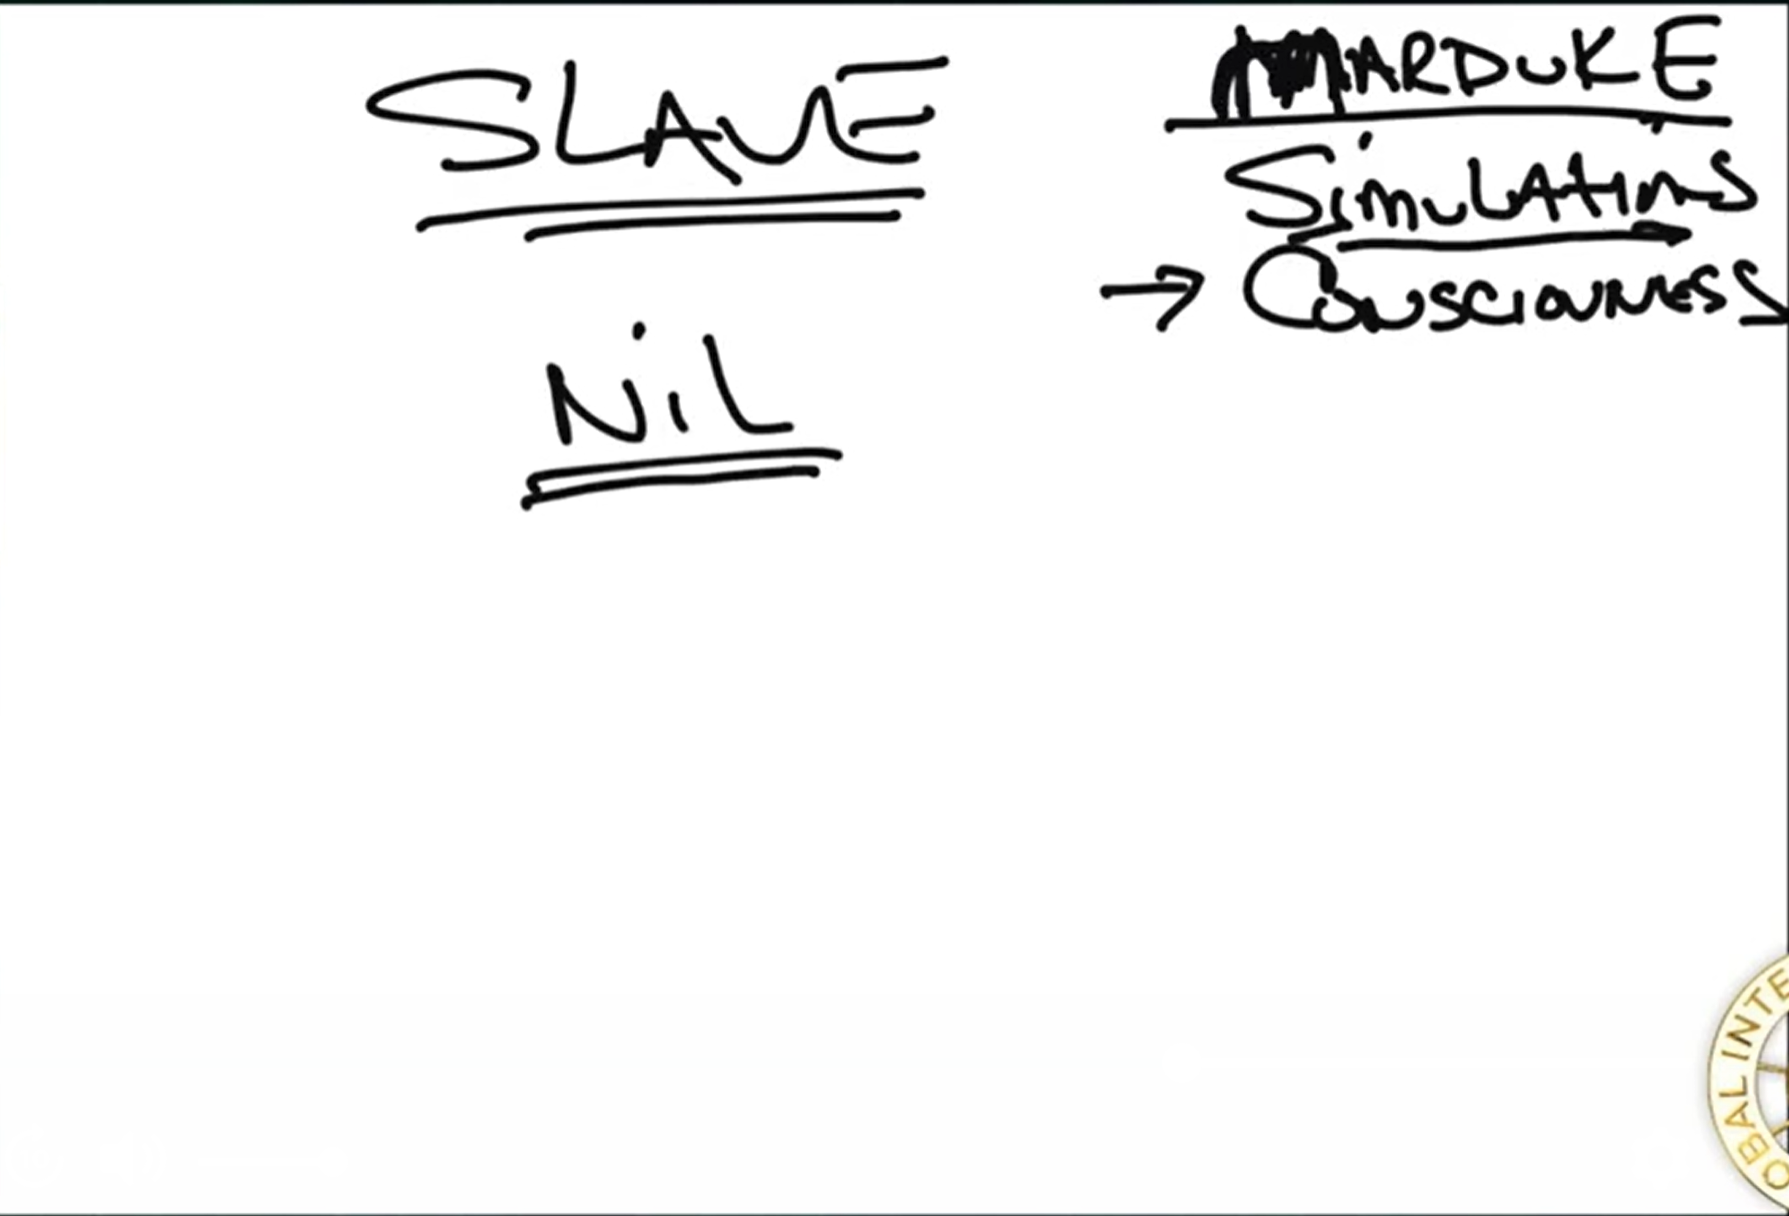 SLAVE
NiL
MARDUKE
SimuLAtins
→ Consciouness
OBAL INTE